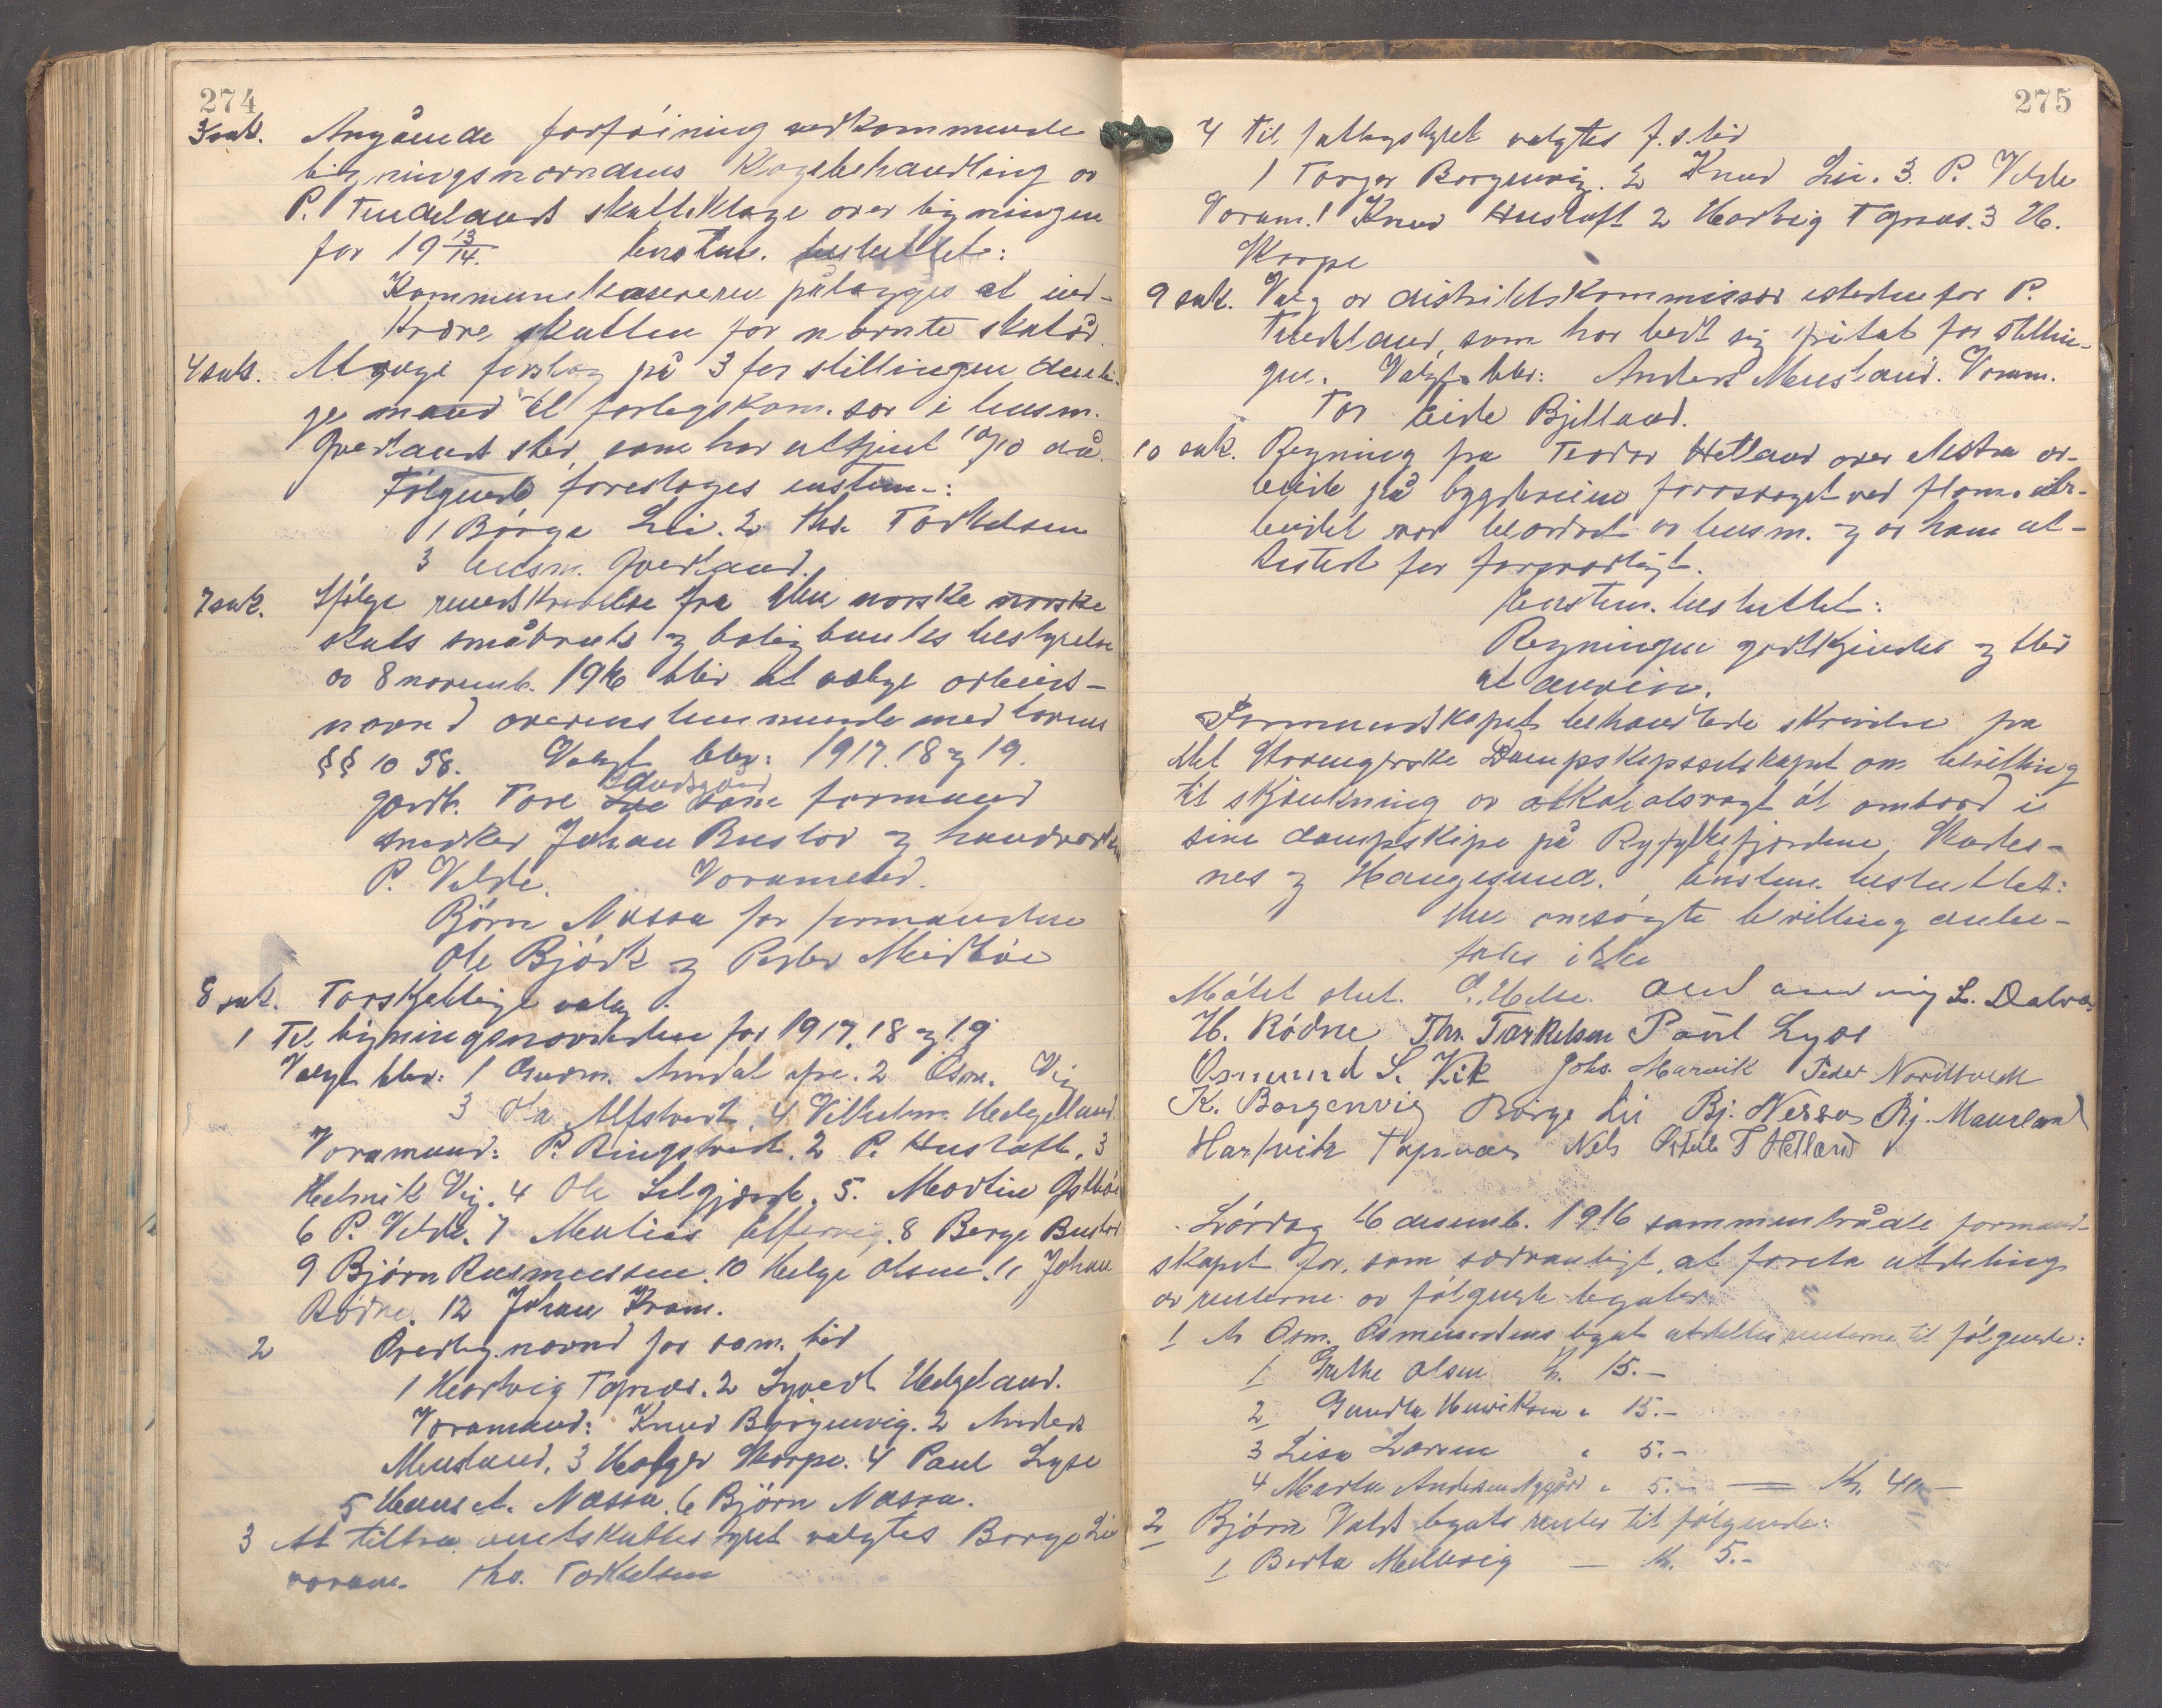 274
3 sak. Angående forføining vedkommende
ligningsnævndens klagebehandling av
P. Tuedelands skatteklage over ligningen
for 19 13/14. Enstem. besluttet:
Kommunekasereren pålægges at ind-
kræve skatten for nævnte skatår.
4 sak. Avgage forslag på 3 for stillingen
mand til forligskom. sær i lensm.
Gvedlands sted, som har uttjent 10/10 då.
Følgende foreslages enstem.:
1 Børge Lii. 2 Thr. Torkelsen
3 lensm. Gvedland.
7 sak. Ifølge rundskrivelse fra den norske norske
stats småbruks og boligbanks bestyrelse
av 8 novemb. 1916 blir at vælge arbeids-
nævnd overensstemmende med lovens
§§ 10 38. Valgt blev: 1917. 18 og 19.
Landsgård
gårdb. Tore Lye som formand
snedker Johan Buslod og handverker
P. Velde. Varamænd.
Bjørn Nassa for formanden
Ole Bjørk og Peder Meidbøe
8 sak. Forskjellige valg
1 Til ligningsnævnden for 1917. 18 og 19
Valgt blev: 1 Gudm. Amdal øfre. 2 Osm. Vig
3 Ola Alfstvedt. 4 Vilhelm Helgeland.
Varamænd: P. Ringstvedt. 2 P. Hustoft. 3
Helmik Vig. 4 Ole Selgjerde. 5. Martin Østbø
6 P. Velde. 7 Matias Elfervig. 8 Berge Buslod
9 Bjørn Rasmussen. 10 Helge Olsen. 11 Johan
Rødne. 12 Johan Fram.
2 Overlig.nævnd for sam. tid
1 Hartvig Tapnes. 2 Syvert Helgeland.
Varamænd: Knud Borgenvig. 2 Anders
Musland. 3 Holger Skorpe. 4 Paul Lyse
5 Hans A. Nassa. 6 Bjørn Nassa.
3 At tiltræ amtskattestyret valgtes Borge Lie
varam. Thr. Torkelsen
275
4 Til fattigstyret valgtes f. s. tid
1 Torger Borgenvig. 2 Knud Lii. 3. P. Velde
Varam. 1 Knud Hustoft 2 Hartvig Tapnes. 3 H.
Skorpe
9 sak. Valg av distriktskommissær istedenfor P.
Tuedeland, som har bedt sig fritat for stillin-
gen. Valgt blev: Anders Musland. Varam.
Tor Eide Bjelland.
10 sak. Regning fra Teodor Hetland over ekstra ar-
beide på bygdeveien forårsaget ved flom. Ar-
beidet var beordret av lensm. og av ham at-
testert for forsvarligt.
Enstem. besluttet:
Regningen godkjendes og blir
at anvise.
Formandskapet behandlede skrivelse fra
det Stavangerske Dampskipsselskapet om bevilling
til skjænkning av alkoholsvagt øl ombord i
sine dampskipe på Ryfylkefjordene, Skudes-
nes og Haugesund. Enstem. besluttet:
Den omsøgte bevilling anbe-
fales ikke
Møtet slut. L. Dalva
H. Rødne Thr. Torkelsen Paul Lyse
Osmund S. Vik Johs. Marvik Peder Nordbrekk
K. Borgenvig Börge Lii Bj. Nessa Bj. Maueland
Hartvik Tapnes Nels Østabø T Hetland
Lørdag 16 desemb. 1916 sammentrådte formand-
skapet for, som sedvanligt, at foreta utdeling
av renterne av følgende legater
1 A Osm. Osmundsens legat utdeltes renterne til følgende:
1 Grethe Olsen kr. 15.-
2 Gundla Henriksen " 15.-
3 Lisa Larsen " 5.-
4 Marta Andersen Nygård " 5.- = Kr. 40.-
2 Bjørn Valdt legats renter til følgende:
1 Berta Mellvig — Kr. 5.-